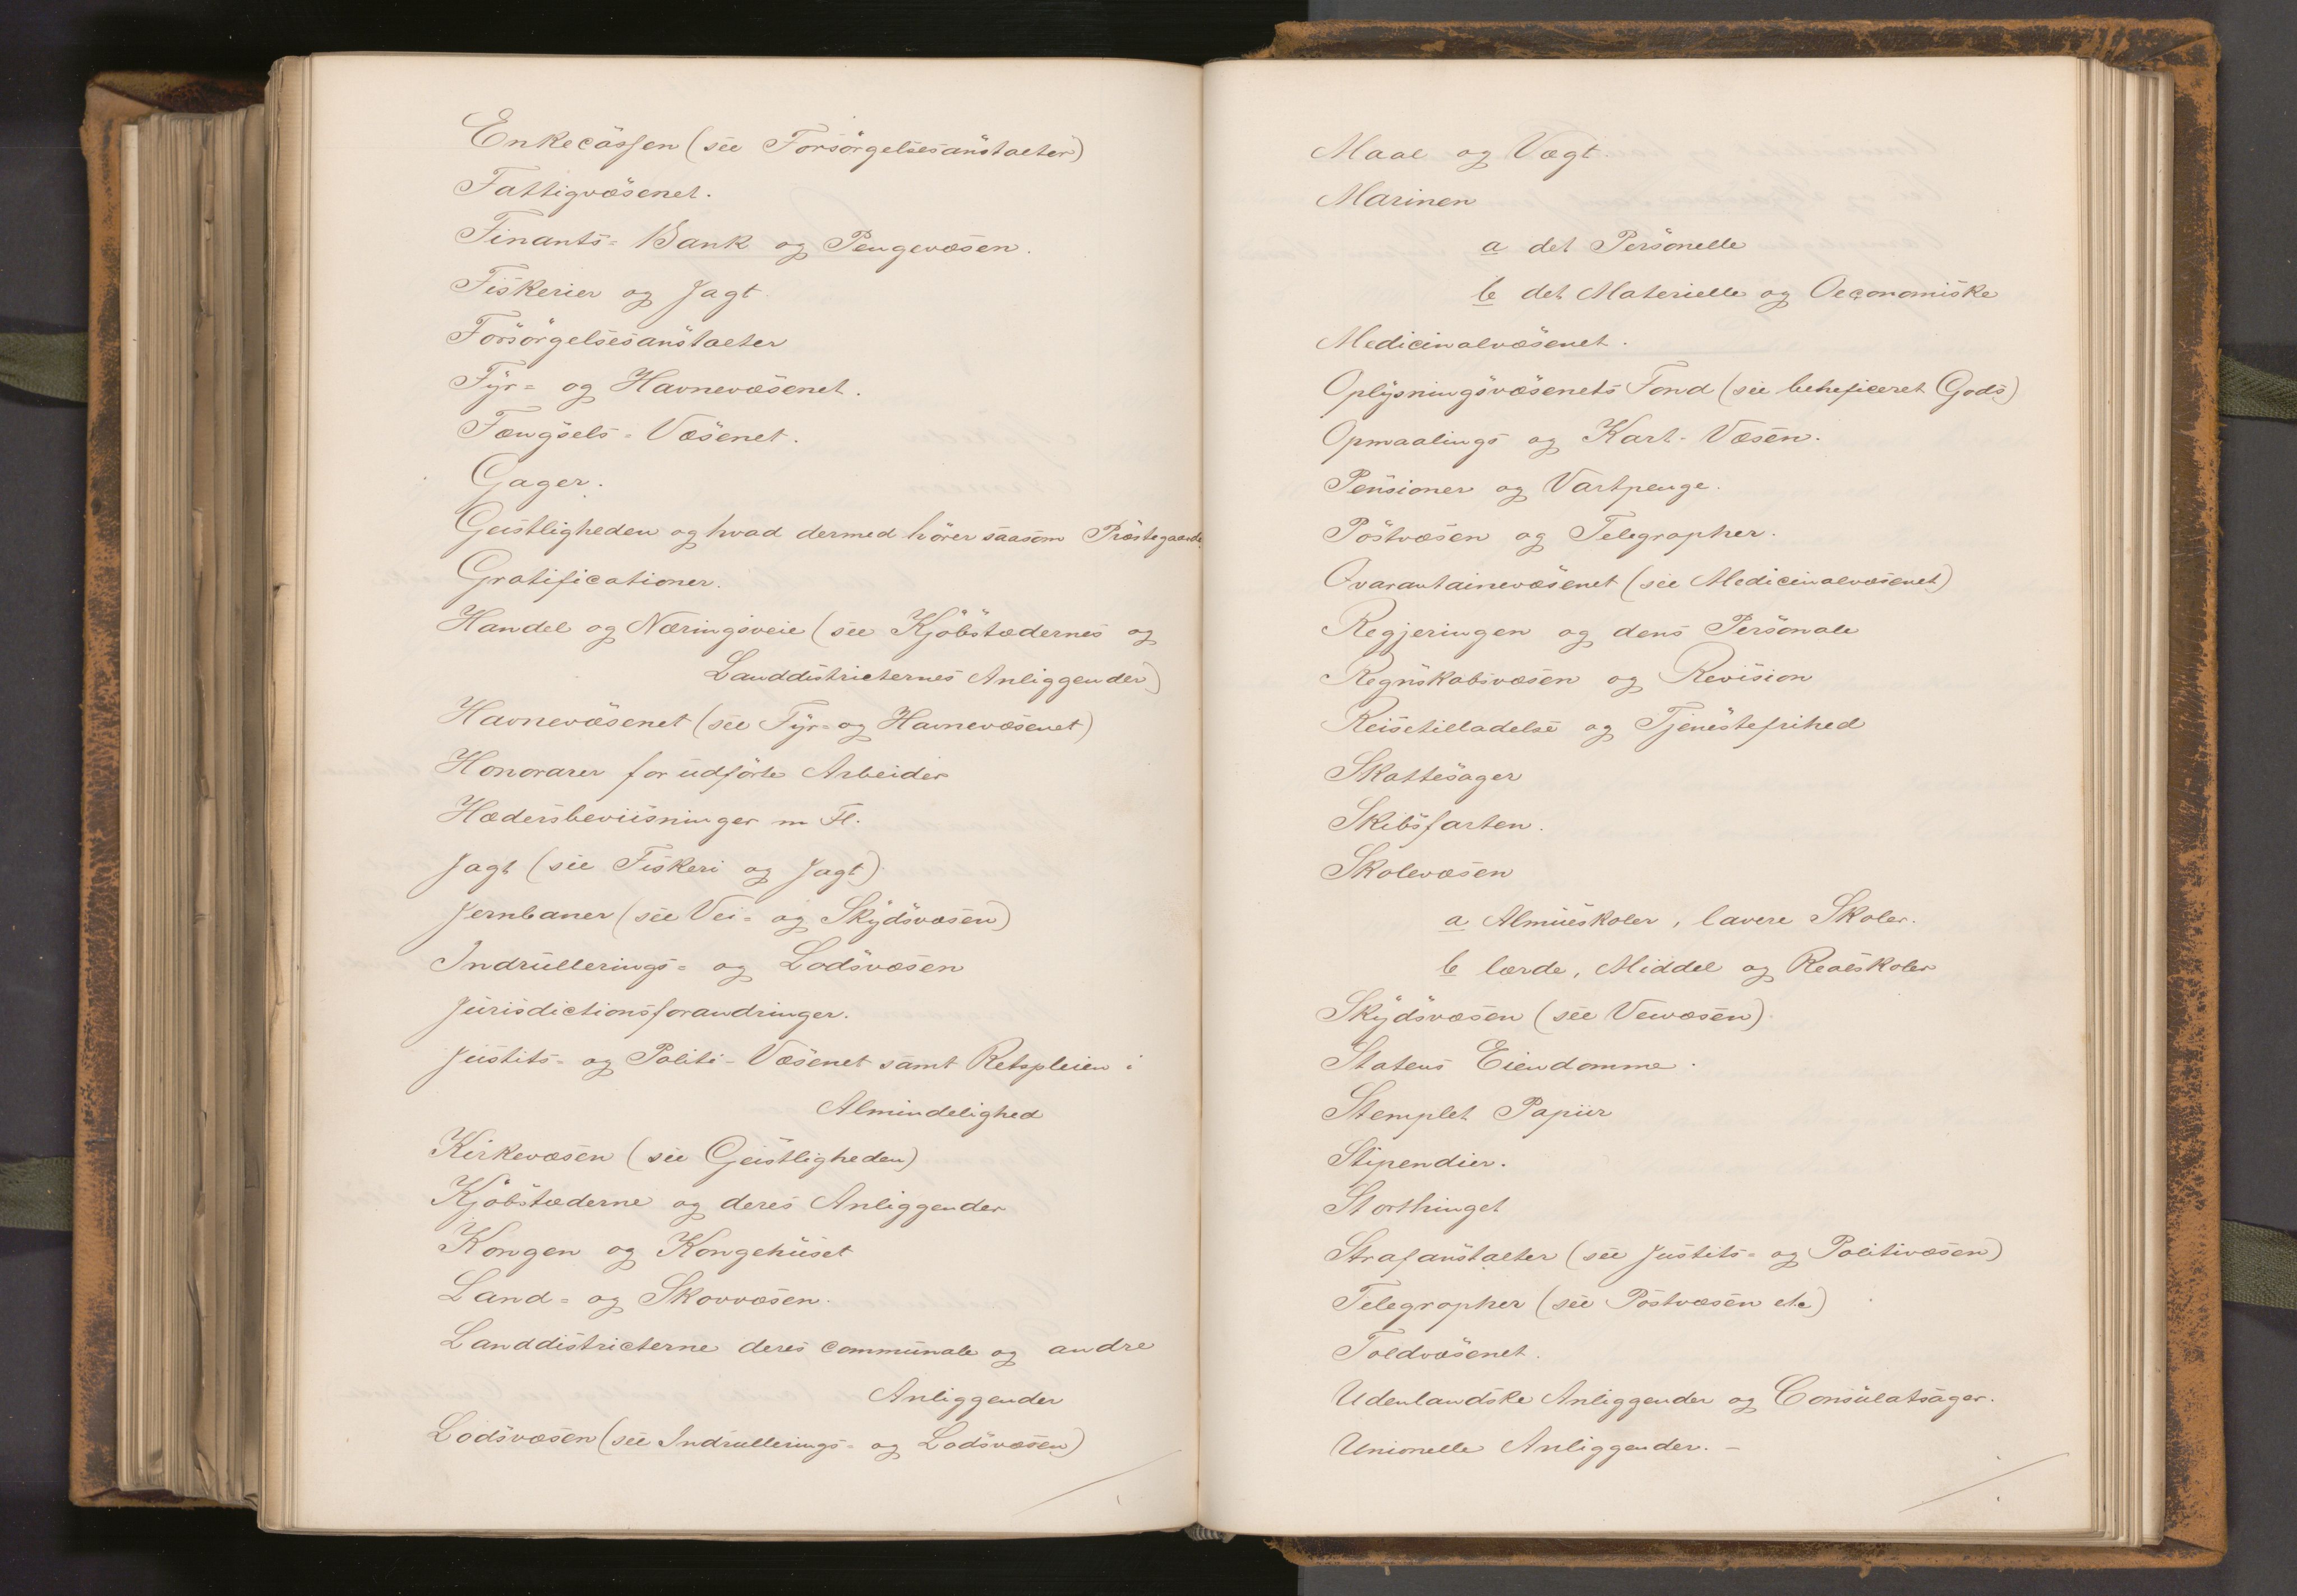 Enkecassen (see Forsörgelsesanstalter)
Fattigvæsenet.
Finants= Bank og Pengevæsen.
Fiskerier og Jagt.
Forsörgelsesanstalter
Fyr= og Havnevæsenet.
Fængsels= Væsenet.
Gager.
Geistligheden og hvad dermed hörer saasom Præstegaarde
Gratificationer.
Handel og Næringsveie (see Kjöbstædernes og
Landdistricternes Anliggender)
Havnevæsenet (see Fyr= og Havnevæsenet)
Honorarer for udförte Arbeider
Hædersbeviisninger m Fl.
Jagt (see Fiskeri og Jagt)
Jernbaner (see Vei= og Skydsvæsen)
Indrullerings= og Lodsvæsen
Jurisdictionsforandringer.
Justits= og Politi-Væsenet samt Retspleien i
Almindelighed
Kirkevæsen (see Geistligheden)
Kjöbstæderne og deres Anliggender
Kongen og Kongehuset
Land= og Skovvæsen.
Landdistricterne deres communale og andre
Anliggender
Lodsvæsen (see Indrullerings= og Lodsvæsen)
Maal og Vægt.
Marinen
a det Personelle
b det Materielle og Oeconomiske
Medicinalvæsenet.
Oplysningsvæsenets Fond (see beneficeret Gods)
Opmaalings og Kart-Væsen.
Pensioner og Vartpenge.
Postvæsen og Telegrapher.
Qvarantainevæsenet (see Medicinalvæsenet)
Regjeringen og dens Personale
Regnskabsvæsen og Revision
Reisetilladelse og Tjenestefrihed
Skattesager
Skibsfarten.
Skolevæsen
a Almueskoler, lavere Skoler.
b lærde, Middel og Realskoler
Skydsvæsen (see Veivæsen)
Statens Eiendomme.
Stemplet Papiir
Stipendier.
Storthinget
Strafanstalter (see Justits= og Politivæsen)
Telegrapher (see Postvæsen etc)
Toldvæsenet.
Udenlandske Anliggender og Consulatsager.
Unionelle Anliggender. -